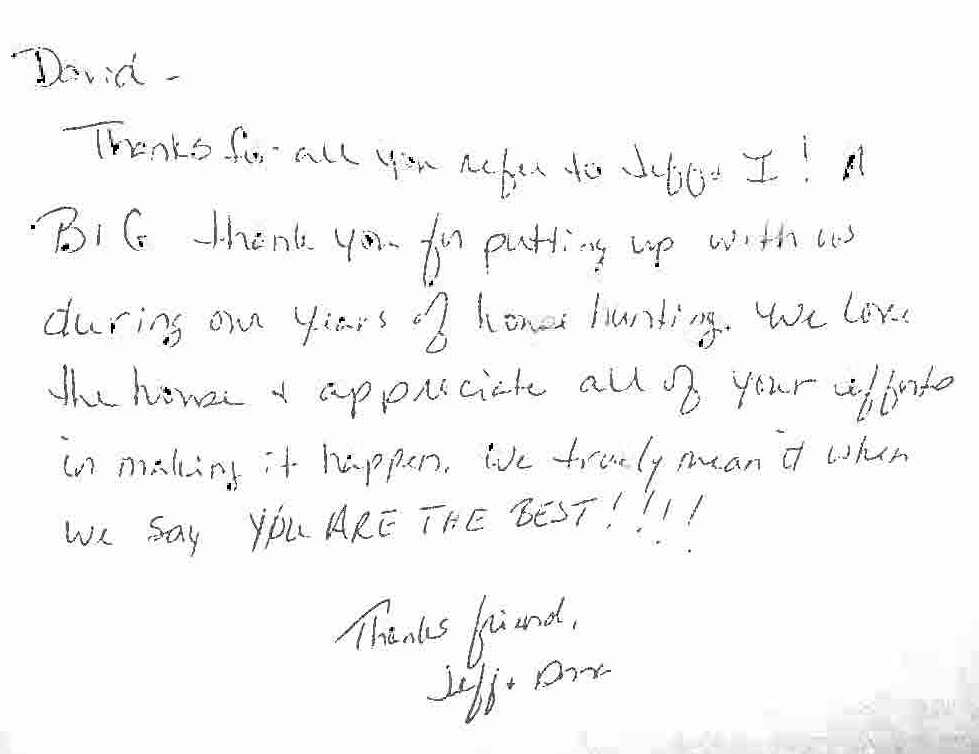 David -
Thanks for all you refer to Jeff & I! A
BIG thank you for putting up with us
during our years of house hunting. We love
the house & appreciate all of your efforts
in making it happen. We truely mean it when
we say YOU ARE THE BEST!!!!
Thanks friend,
Jeff &